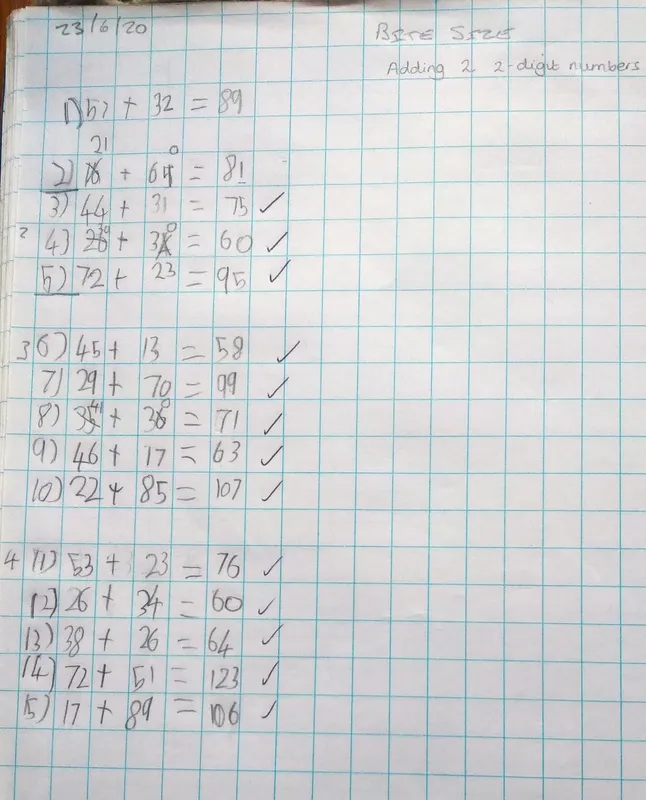 23/6/20
BITE SIZE
Adding 2 2-digit numbers
1) 57 + 32 = 89
21 0
2) 16 + 65 = 81
3) 44 + 31 = 75 ✓
2 4) 26 30 + 34 0 = 60 ✓
5) 72 + 23 = 95 ✓
3 6) 45 + 13 = 58 ✓
7) 29 + 70 = 99 ✓
8) 35 41 + 36 0 = 71 ✓
9) 46 + 17 = 63 ✓
10) 22 + 85 = 107 ✓
4 11) 53 + 23 = 76 ✓
12) 26 + 34 = 60 ✓
13) 38 + 26 = 64 ✓
14) 72 + 51 = 123 ✓
15) 17 + 89 = 106 ✓